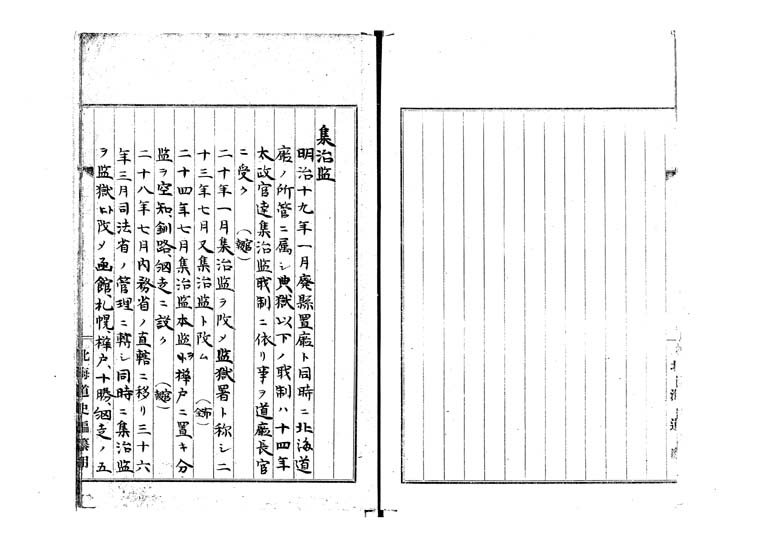 集治监
明治十九年一月廢縣置廳ト同時ニ北海道
廳ノ所管ニ属シ典獄以下ノ職制ハ十四年
太政官達集治监職制ニ依リ事ヲ道廳長官
ニ受ク
二十年一月集治监ヲ改メ监獄署ト称シ二
十三年七月又集治监ト改ム
二十四年七月集治监本监ヲ樺戸ニ置キ分
监ヲ空知、釧路、網走ニ設ク
二十八年七月內務省ノ直轄ニ移リ三十六
年三月司法省ノ管理ニ轉シ同時ニ集治监
ヲ监獄ト改メ函館、札幌、樺戸、十勝、網走ノ五
北海道史編纂用